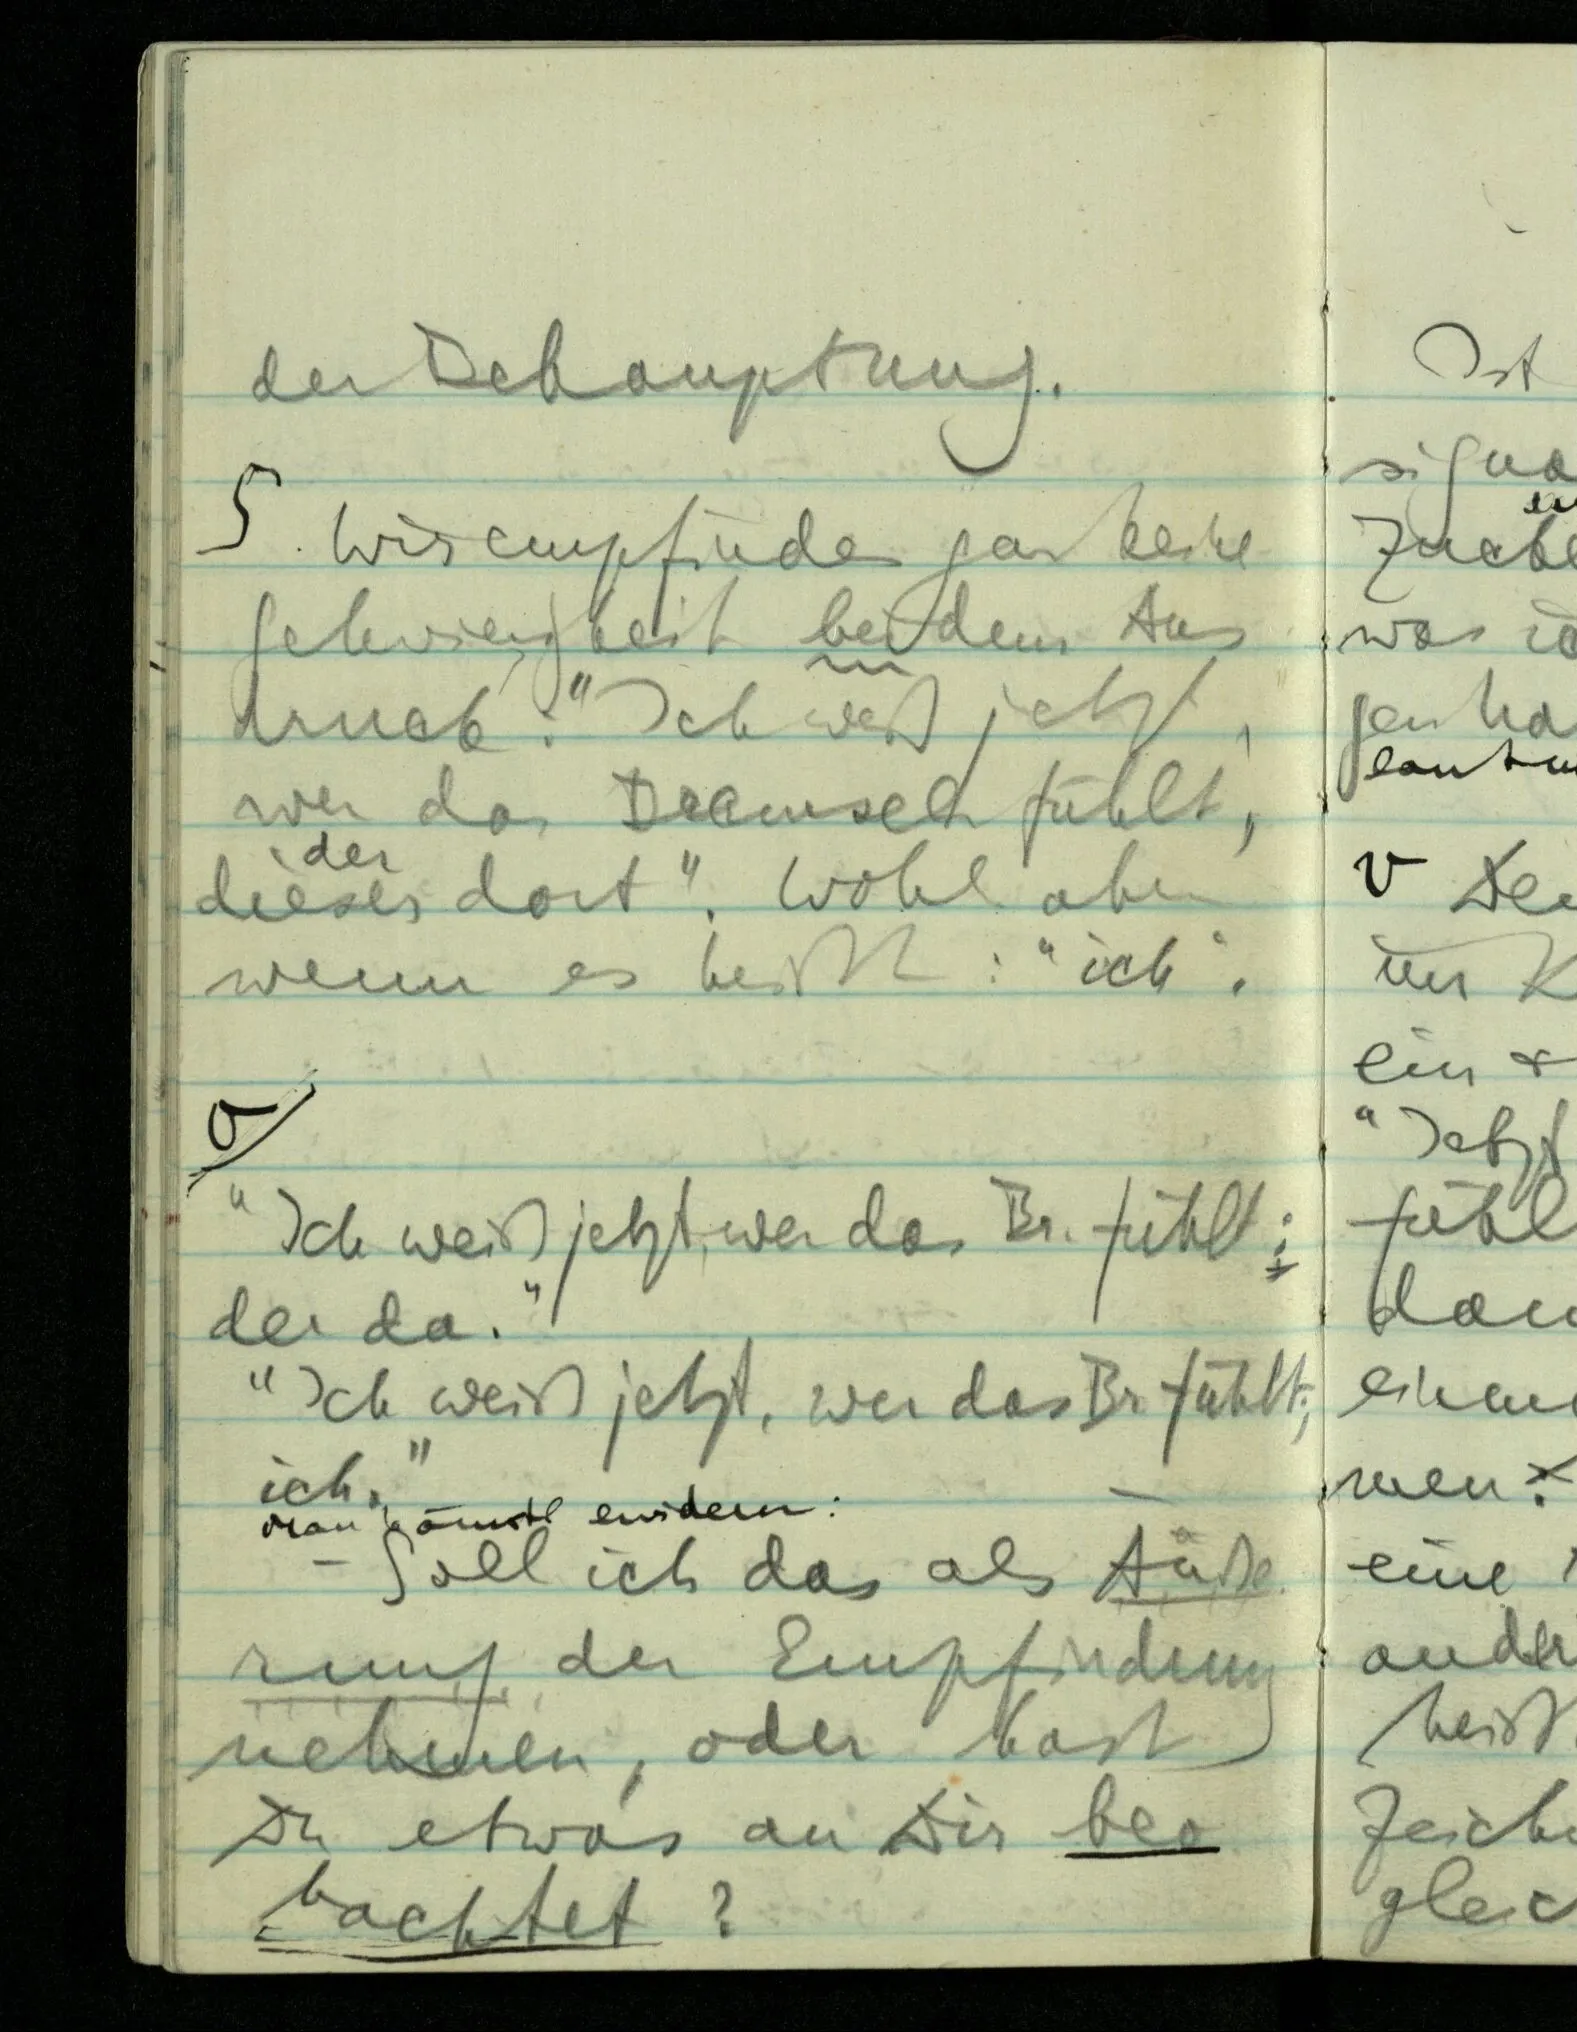 der Behauptung.
S. Wir empfinden gar keine
Schwierigkeit bei dem Aus
druck: "Ich weiß jetzt,
wer das Brennen fühlt,
der
dieser dort". Wohl aber
wenn es heißt: "ich".
"Ich weiß jetzt, wer das Br. fühlt;
der da."
"Ich weiß jetzt, wer das Br fühlt;
ich."
man könnte erwidern:
– Soll ich das als Äuße
rung der Empfindung
nehmen, oder hast
Du etwas an Dir beo
bachtet?
Ist
signa
Zucke
was ic
gen ha
V Den
im K
ein &
"Jetzt
fühl
dan
einem
men?
eine
ander
heißt
Zeiche
gleic